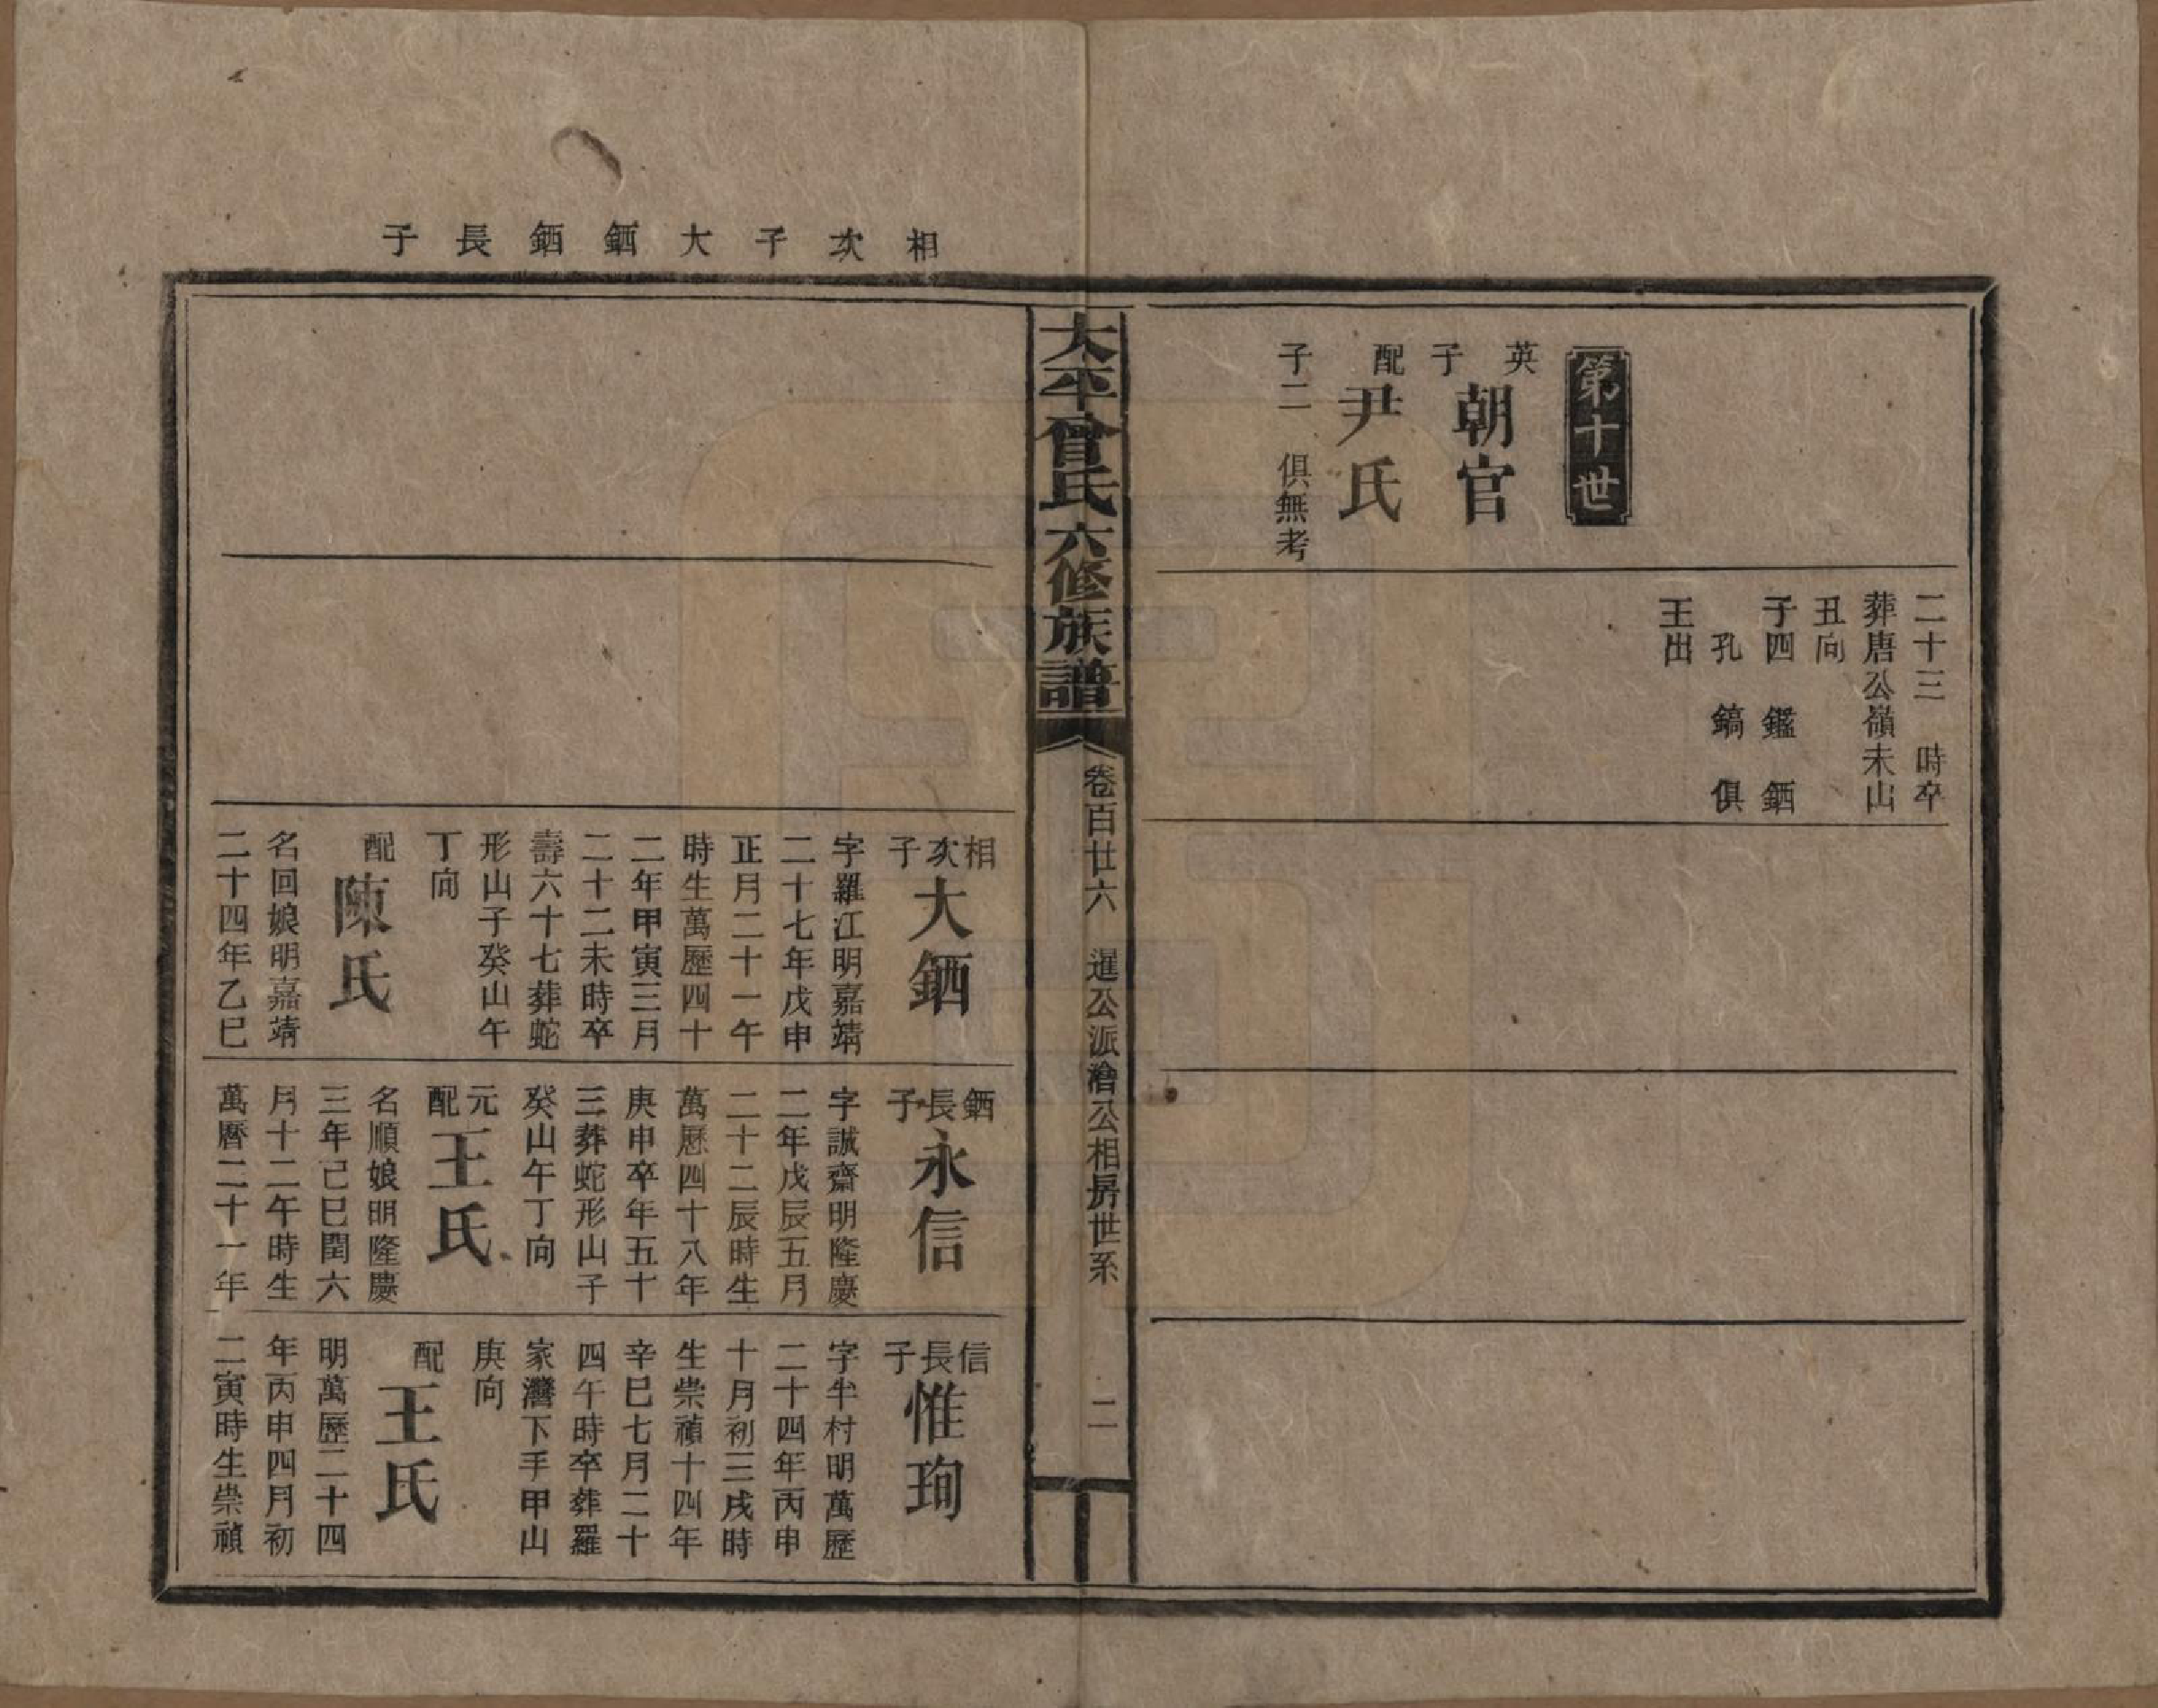 第十世
英子
朝官
配
尹氏
子二 俱無考
二十三 時卒
葬唐公嶺未山
丑向
子四 鑑 鉔
孔 鎬 俱
王出
大平曾氏六修族譜
卷百廿六 暹公派㵮公相房世系
二
相次子大鉔鉔長子
相次子
大鉔
字羅江明嘉靖
二十七年戊申
正月二十一午
時生萬歷四十
二年甲寅三月
二十二未時卒
壽六十七葬蛇
形山子癸山午
丁向
配
陳氏
名回娘明嘉靖
二十四年乙巳
鉔長子
永信
字誠齋明隆慶
二年戊辰五月
二十二辰時生
萬歷四十八年
庚申卒年五十
三葬蛇形山子
癸山午丁向
元配
王氏
名順娘明隆慶
三年己巳閏六
月十二午時生
萬曆二十一年
信長子
惟珣
字半村明萬歷
二十四年丙申
十月初三戌時
生崇禎十四年
辛巳七月二十
四午時卒葬羅
家灣下手甲山
庚向
配
王氏
明萬歷二十四
年丙申四月初
二寅時生崇禎